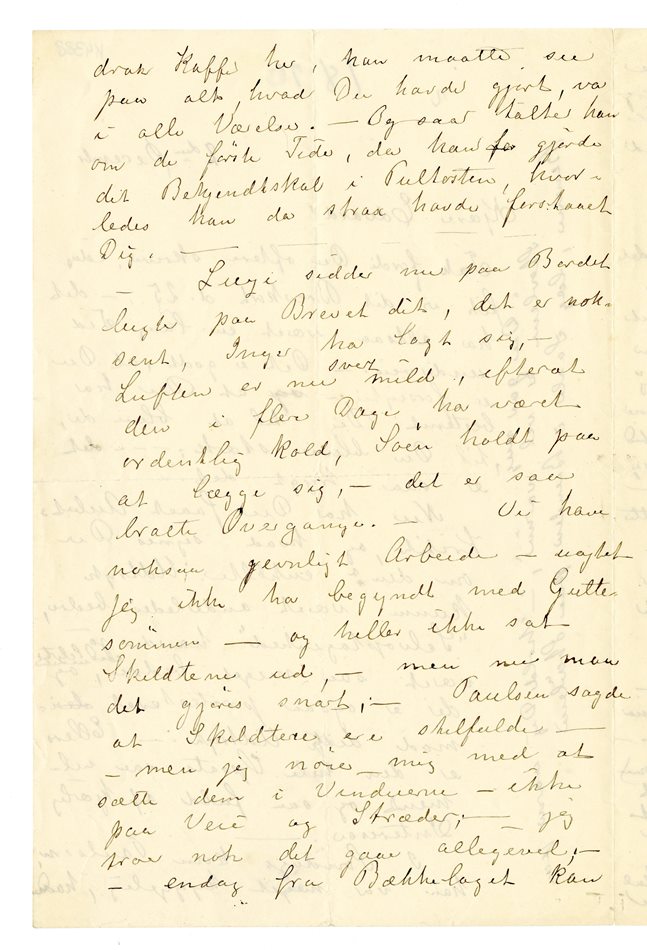 drak Kaffe her, han maatte see
paa alt, hvad Du havde gjort, va
i alle Værelse. — Og saa talte han
om de første Tide, da han gjörde
dit Bekjendtskab i Pultosten, hvor-
ledes han da strax havde forstaaet
Dig. —
— sidder nu paa Bordet
lugte paa Brevet dit, det er nok-
sent, Inger ha lagt sig, —
Luften er nu svert mild, efterat
den i flere Dage ha været
ordentlig kold, Soèn holdt paa
at lægge sig, — det er saa
bratte Overgange. — Vi have
noksaa jevnligt Arbeide — uagtet
jeg ikke ha begyndt med Gutte-
sömmen — og heller ikke sat
Skildtene ud, — men nu maa
det gjöres snart; — Paulsen sagde
at Skildtene ere stilfulde —
— men jeg nöie mig med at
sætte dem i Vinduerne — ikke
paa Veie og Stræder; — jeg
troe nok det gaar allegevel, —
— endog fra Bækkelaget kan